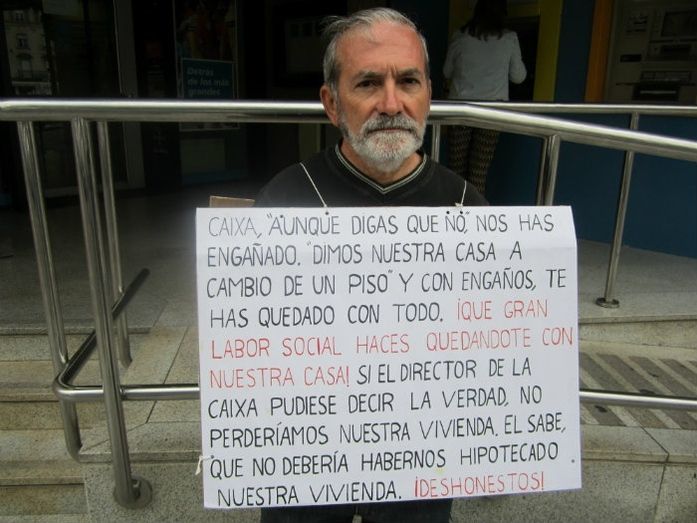 Detrás
de los más
grandes
CAIXA, "AUNQUE DIGAS QUE NO", NOS HAS
ENGAÑADO. "DIMOS NUESTRA CASA A
CAMBIO DE UN PISO" Y CON ENGAÑOS, TE
HAS QUEDADO CON TODO. ¡QUE GRAN
LABOR SOCIAL HACES QUEDANDOTE CON
NUESTRA CASA! SI EL DIRECTOR DE LA
CAIXA PUDIESE DECIR LA VERDAD, NO
PERDERÍAMOS NUESTRA VIVIENDA. EL SABE,
QUE NO DEBERÍA HABERNOS HIPOTECADO
NUESTRA VIVIENDA. ¡DESHONESTOS!